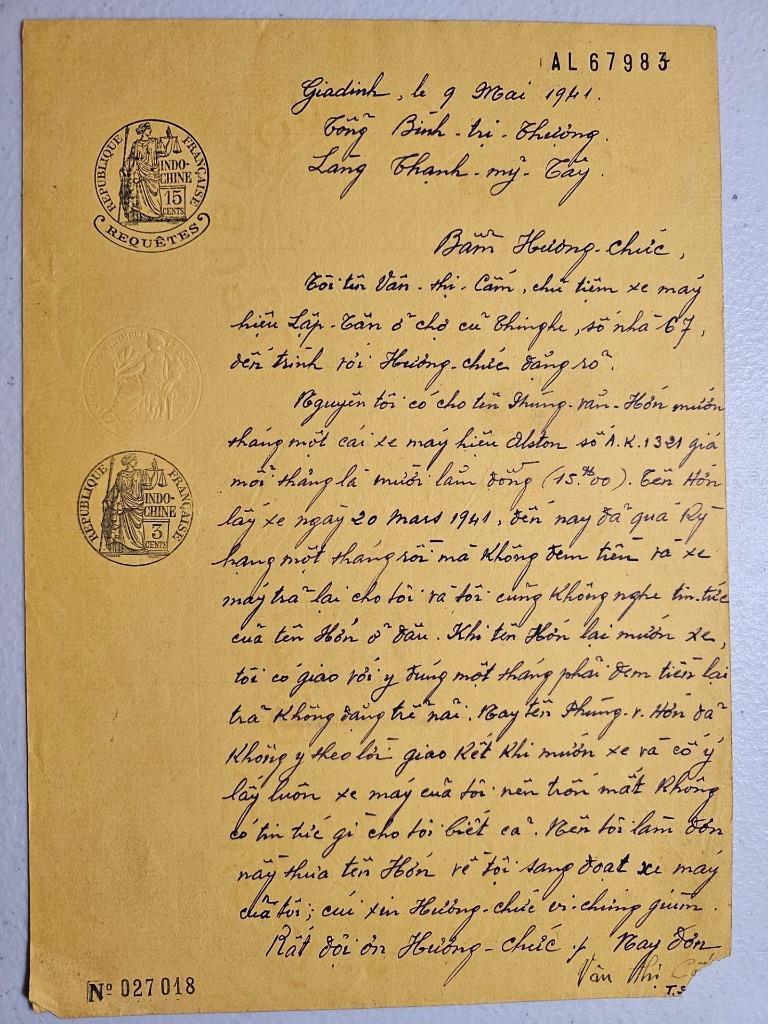 AL 67983
Giadinh, le 9 Mai 1941.
Tổng Bình-trị-Thượng.
Làng Thạnh-mỹ-Tây
RÉPUBLIQUE FRANÇAISE
INDO-
CHINE
15
CENTS
REQUÊTES
Bẩm Hương-chức,
Tôi tên Văn-thị-Cấm, chủ tiệm xe máy
hiệu Lập-Tân ở chợ cũ Thinghe, số nhà 67,
đến trình với Hương-chức đặng rõ.
Nguyên tôi có cho tên Phùng-văn-Hớn mướn
tháng một cái xe máy hiệu Alston số A.K.1321 giá
mỗi tháng là mười lăm đồng (15.$00). Tên Hớn
lấy xe ngày 20 Mars 1941, đến nay đã quá kỳ
hạng một tháng rồi mà không đem tiền và xe
máy trả lại cho tôi và tôi cũng không nghe tin-tức
của tên Hớn ở đâu. Khi tên Hớn lại mướn xe,
tôi có giao với y đúng một tháng phải đem tiền lại
trả không đặng trễ nải. Nay tên Phùng-v-Hớn đã
không y theo lời giao kết khi mướn xe và cố ý
lấy luôn xe máy của tôi nên trốn mất không
có tin tức gì cho tôi biết cả. Nên tôi làm đơn
nầy thưa tên Hớn về tội sang đoạt xe máy
của tôi; cúi xin Hương-chức vi-chứng giùm.
Rất đội ơn Hương-chức ./. Nay đơn
Văn Thị
RÉPUBLIQUE FRANÇAISE
INDO-
CHINE
3
CENTS
Nº 027018